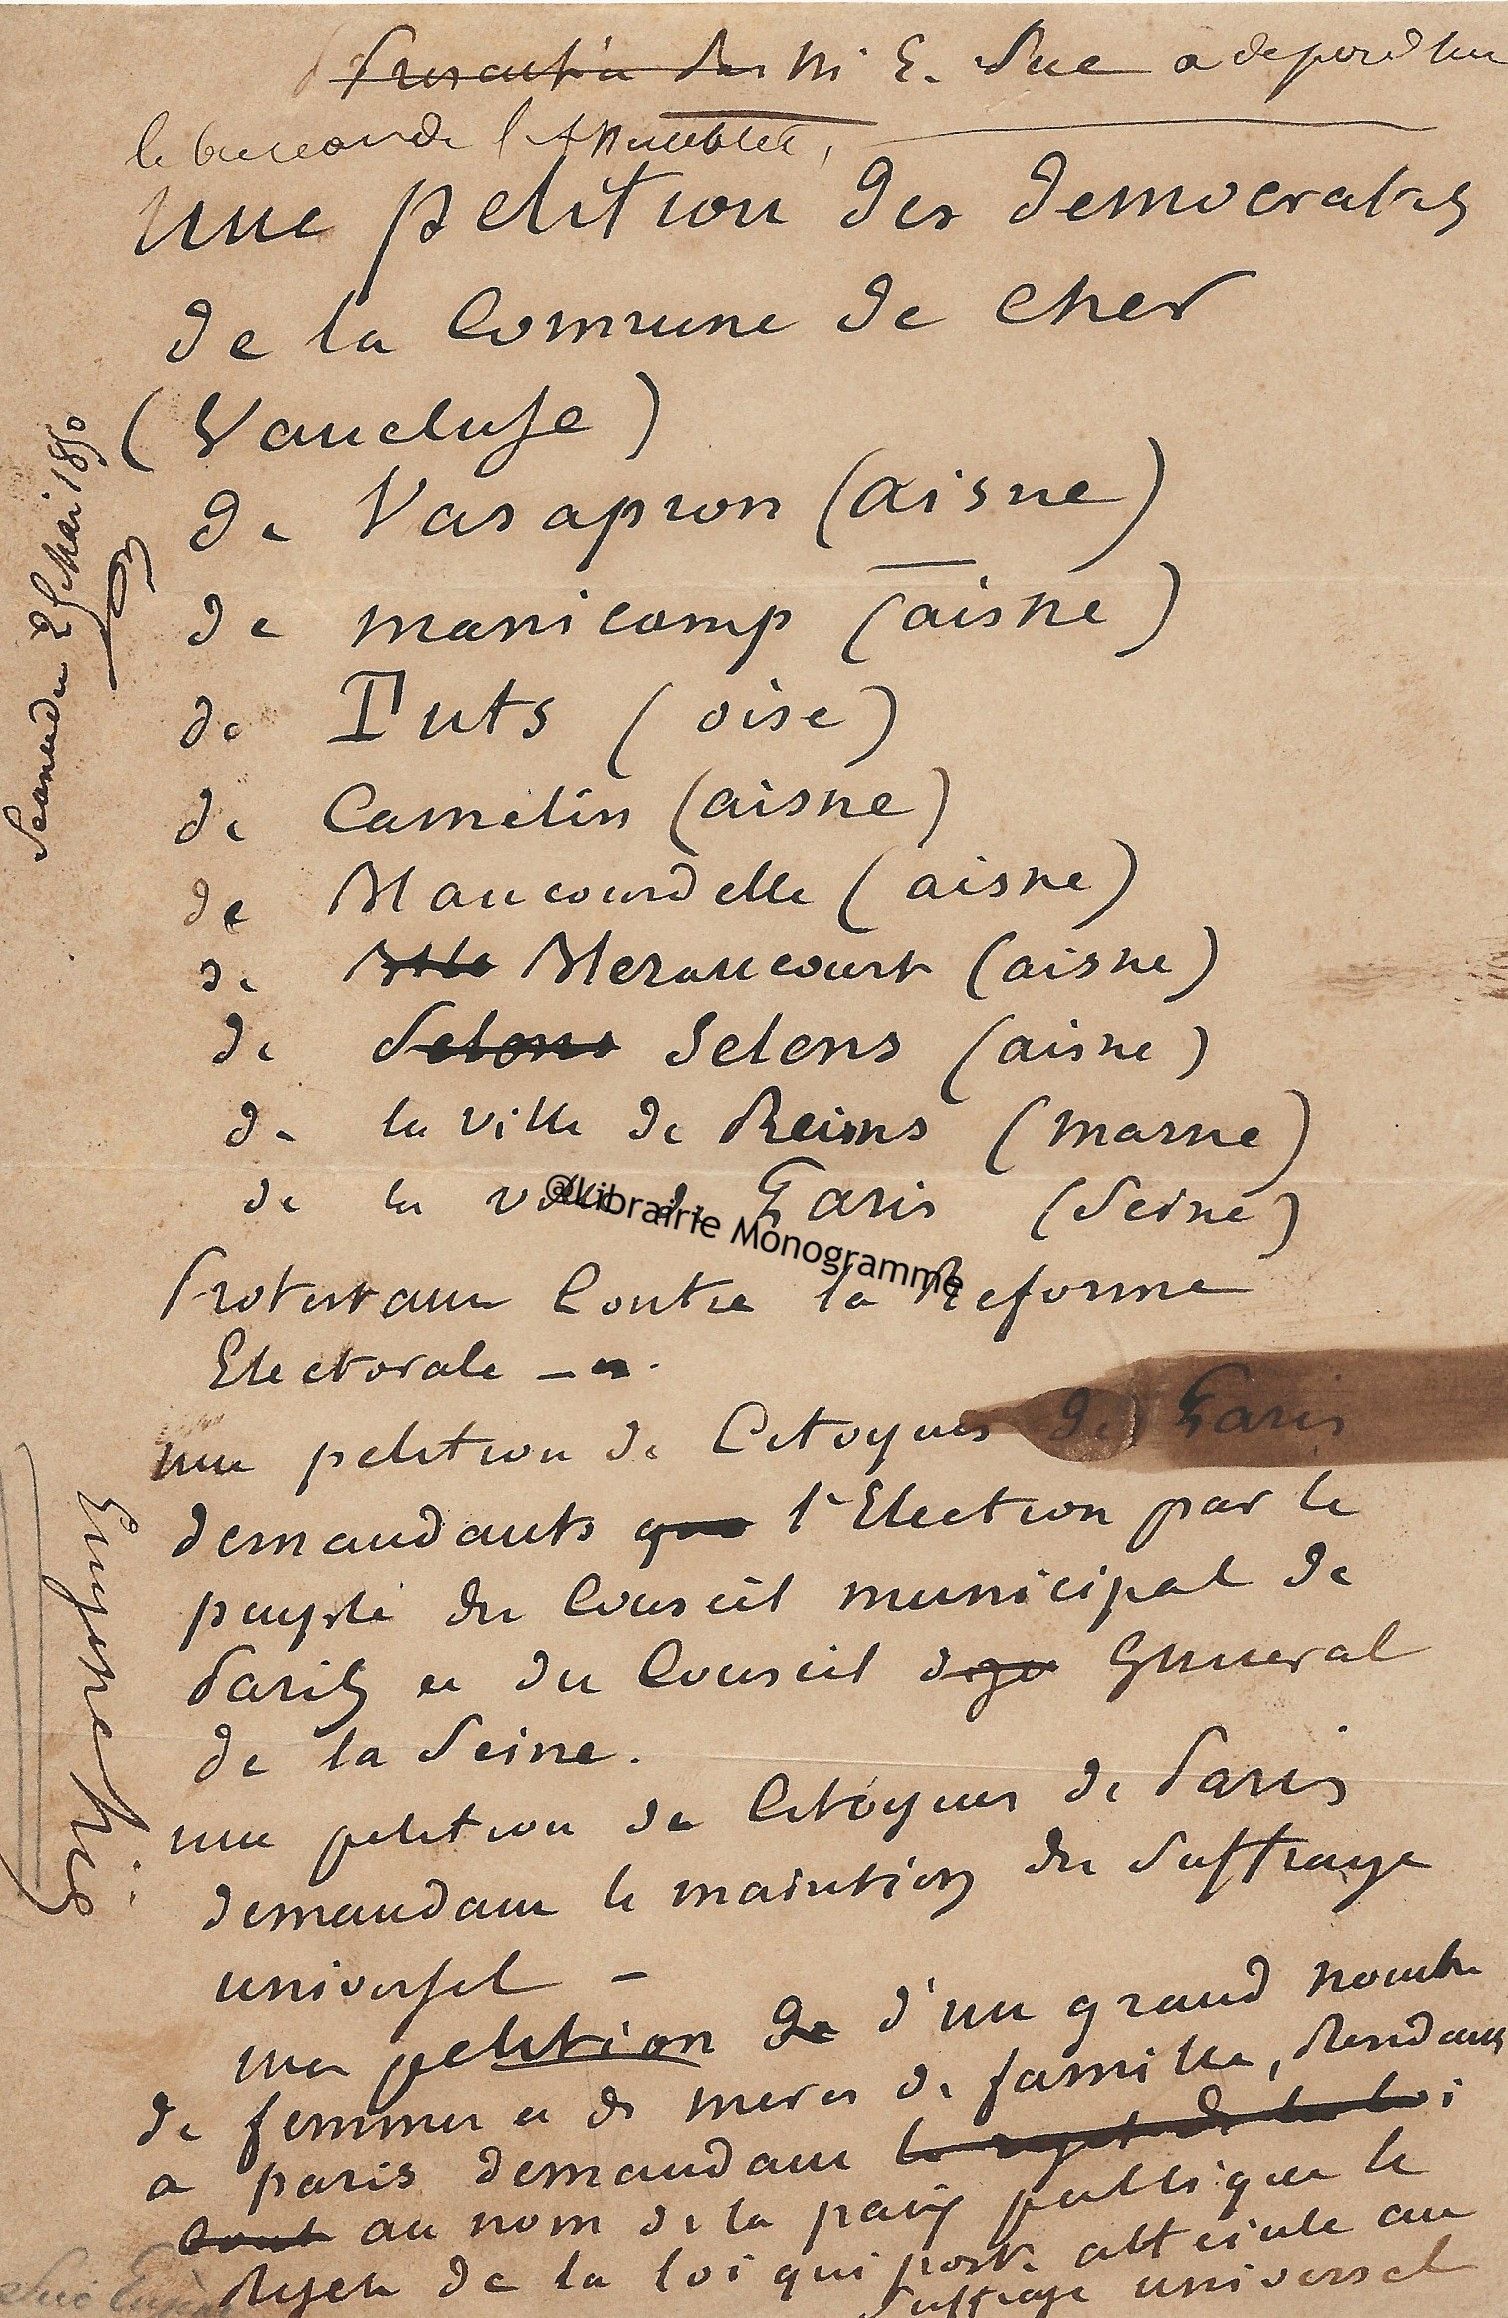 Presentée par M. E. Sue a deposé sur
le bureau de l'Assemblée,
une petition des democrates
de la Commune de cher
(Vaucluse)
de Vasapron (aisne)
de manicamp (aisne)
de Puts (oise)
de Camelin (aisne)
de Maucourdelle (aisne)
de Merancourt (aisne)
de Selons Selens (aisne)
de la ville de Reims (marne)
de la ville de Paris (Seine)
Protestant Contre la Reforme
Electorale —
une petition de Citoyens de Paris
demandants que l'Election par le
peuple du Conseil municipal de
Paris et du Conseil General
de la Seine.
une petition de Citoyens de Paris
demandant le maintien du Suffrage
universel —
une petition de d'un grand nombre
de femmes et de meres de famille,
a paris demandant le rejet de la loi
tout au nom de la paix publique le
rejet de la loi qui porte atteinte au
suffrage universel
Seance du 25 Mai 1850
Eugene Sue
@Librairie Monogramme
Sue Eugène